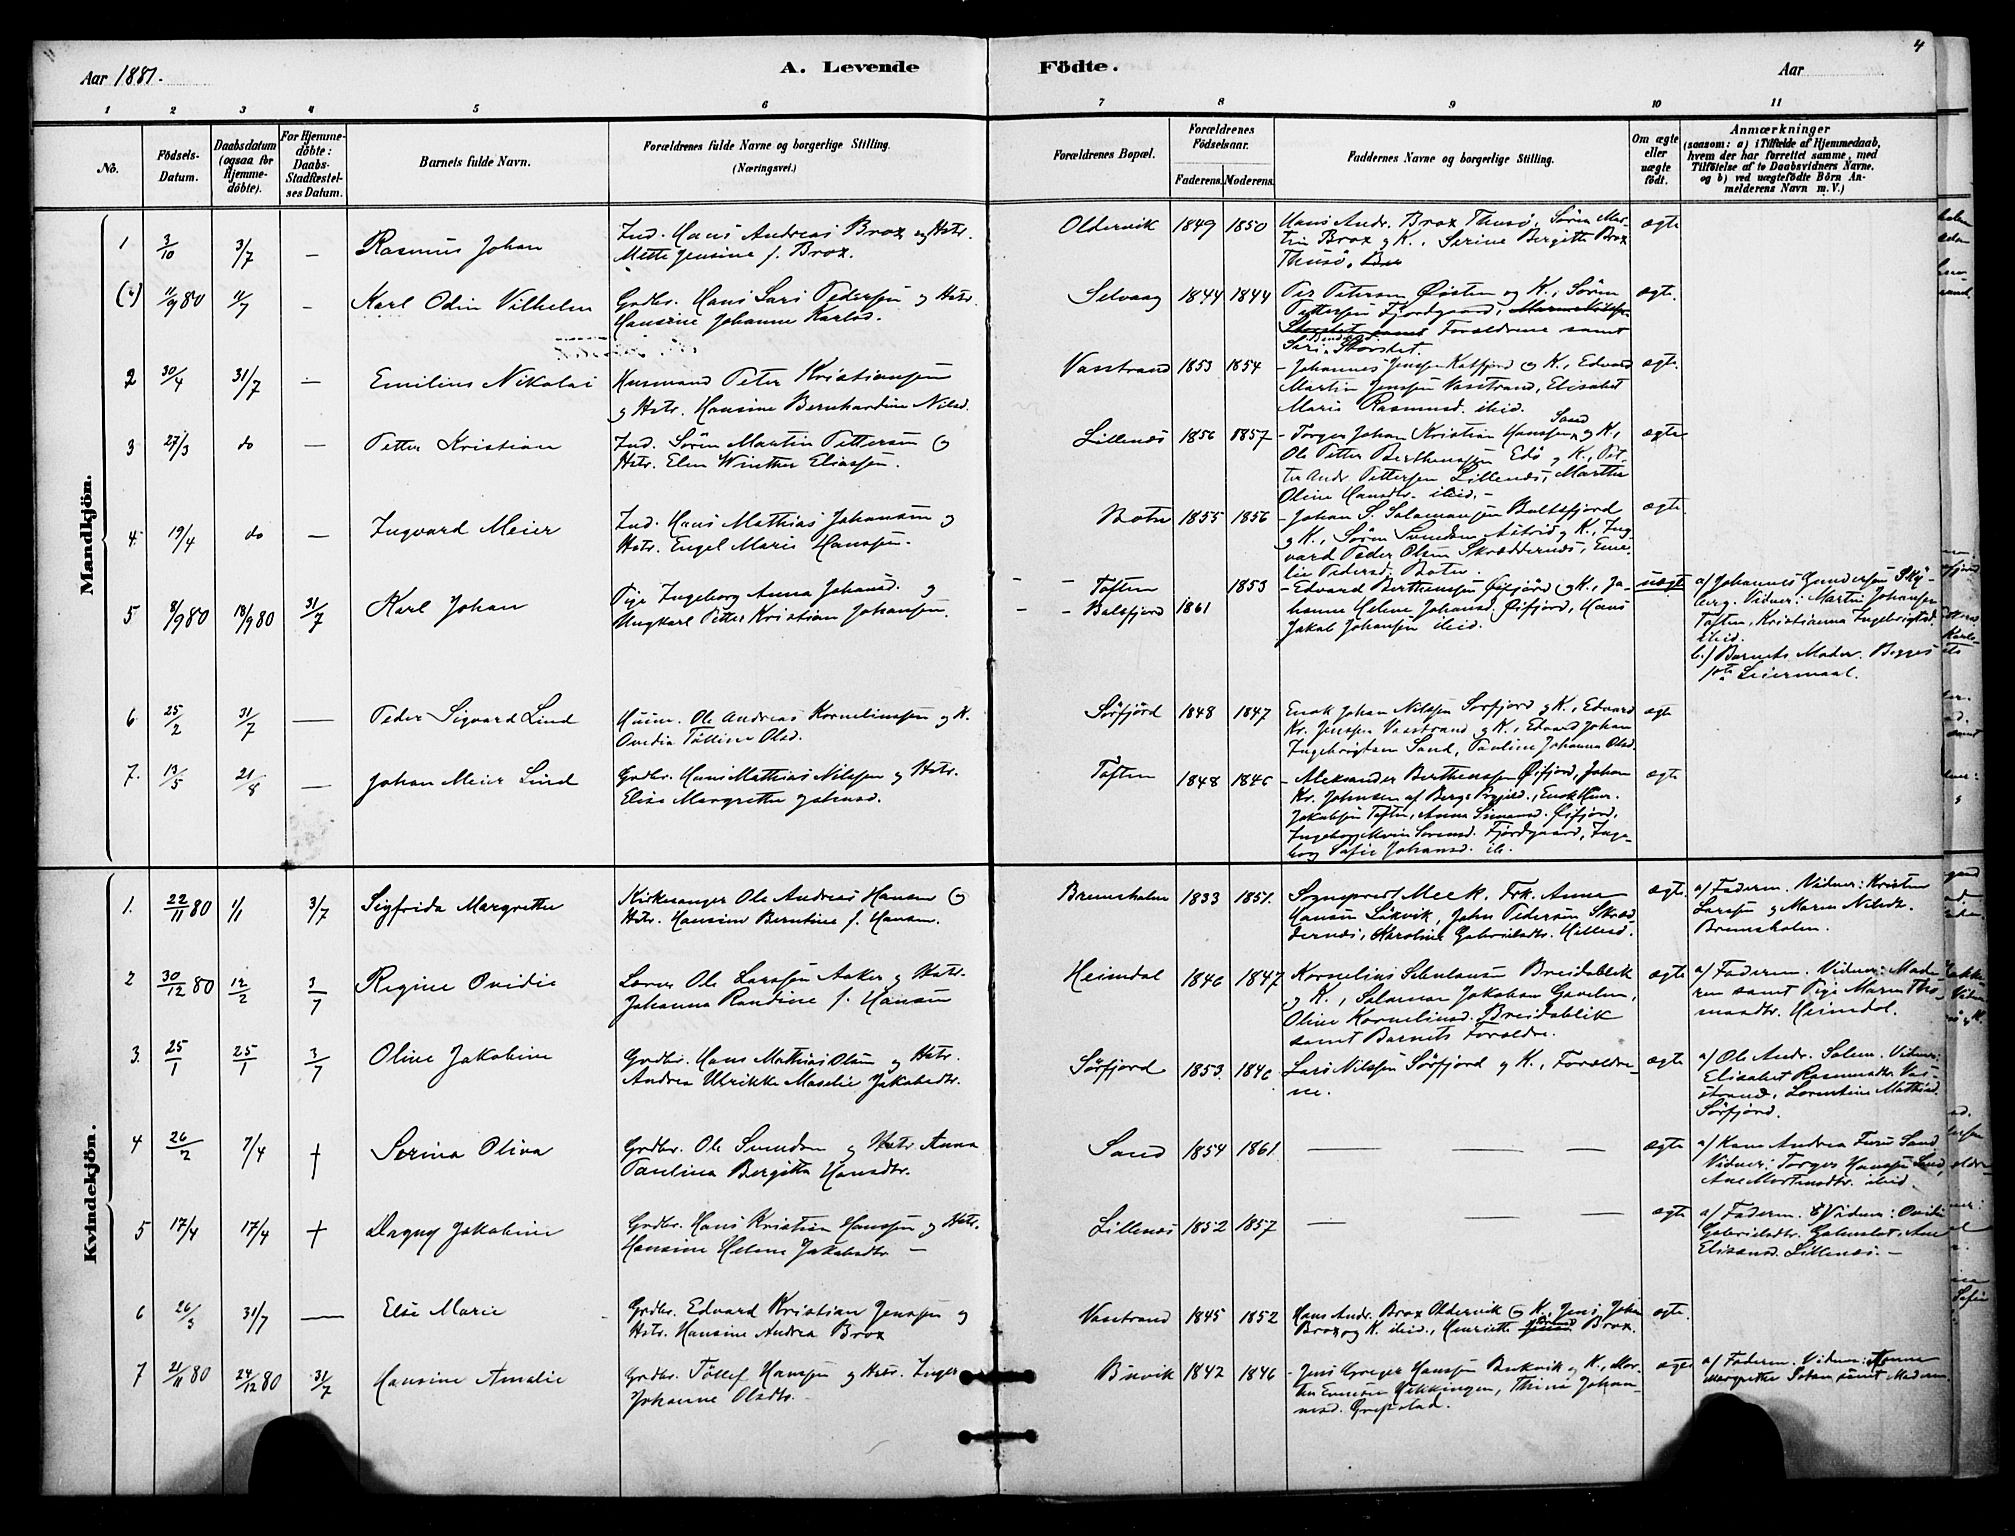 4
Aar 1881.
A. Levende Födte.
Aar
1 2 3 4 5 6 7 8 9 10 11
No.
Födsels-
Datum.
Daabsdatum
(ogsaa for
Hjemme-
döbte).
For Hjemme-
döbte:
Daabs-
Stadfæstel-
ses Datum.
Barnets fulde Navn.
Forældrenes fulde Navne og borgerlige Stilling.
(Næringsvei.)
Forældrenes Bopæl.
Forældrenes
Födselsaar.
Faderens. Moderens.
Faddernes Navne og borgerlige Stilling.
Om ægte
eller
uægte
födt.
Anmærkninger
(saasom: a) i Tilfælde af Hjemmedaab,
hvem der har forrettet samme, med
Tilföielse af to Daabsvidners Navne.
og b) ved uægtefödte Börn An-
melderens Navn m. V.)
Mandkjön.
1 3/10 3/7 — Rasmus Johan
Ind. Hans Andreas Brox og Hstr.
Mette Jensine f. Brox.
Oldervik 1849 1850
Hans Andr. Brox Thusö, Sören Mar-
tin Brox og K., Serine Bergitte Brox
Thusö.
ægte
11/9 80 11/7 — Karl Odin Vilhelm
Grdbr. Hans Lars Pedersen og Hstr.
Hansine Johanne Karlsd.
Selvaag 1844 1844
Per Petersen Öisten og K., Sören
Pettersen Fjordgaard,
Forældrene samt
ægte.
2 30/4 31/7 — Emilius Nikolai
Husmand Peter Kristiansen
og Hstr. Hansine Bernhardine Nilsd.
Vasstrand 1853 1854
- Johannes Jenssen Katfjord og K., Edvard
Martin Jenssen Vasstrand, Elisabet
Marie Rasmusd. ibid.
ægte.
3 27/3 do — Petter Kristian
Ind. Sören Martin Pettersen og
Hstr. Elen Winther Eliassen.
Lillenes 1856 1857
- Torger Johan Kristian Hanssen Sand og K.,
Ole Petter Berthenssen Edö og K., Pet-
ter Andr. Pettersen Lillenes, Marthe
Oline Hansdtr. ibid. -
ægte
4. 19/4 do — Ingvard Meier
Ind. Hans Mathias Johansen og
Hstr. Engel Marie Hanssen.
Botn 1855 1856
- Johan S. Salamonsen Baltsfjord
og K., Sören Svendsen Astrid og K., Ing-
vard Peder Olsen Skreddernes, Eme-
lie Pedersd. Botn.
ægte
5 8/9 80 18/9 80 31/7 Karl Johan
Pige Ingeborg Anna Johansd. og
Ungkarl Petter Kristian Johansen.
- - Toften 1853
- - Balsfjord 1861
- Edvard Berthenssen Öifjord og K., Jo-
hanne Helene Johansd. Öifjord, Hans
Jakob Johansen ibid.
uægte
a/ Johannes Gundersen Sky-
berg. Vidner: Martin Johansen
Toften, Kristianna Ingebrigtsd.
ibid.
b.) Barnets Moder. Begges
1ste Leiermaal.
6 25/2 31/7 — Peder Sigvard Lind
Husm. Ole Andreas Kornelinssen og K.
Ovedia Tölline Olsd.
Sörfjord 1848 1847
Enok Johan Nilssen Sörfjord og K., Edvard
Kr. Jenssen Vasstrand og K., Edvard Johan
Ingebrigtsen Sand, Pauline Johanna Olsd.
ægte
7. 13/5 21/8 — Johan Meier Lind
Grdbr. Hans Mathias Nilssen og Hstr.
Elise Margrethe Johnsd.
Toften 1848 1846
- Aleksander Berthenssen Öifjord, Johan
Kr. Johnsen af Bergs Prgjeld., Enok Henr.
Jakobsen Toften, Anna Simonsd. Öifjord,
Ingeborg Marie Sörensd. Fjordgaard, Inge-
borg Sofie Johansd. ib.
ægte
Kvindekjön.
1. 22/11 80 1/1 3/7 Sigfrida Margrethe
Kirkesanger Ole Andreas Hansen og
Hstr. Hansine Berntine f. Hansen.
Bremsholm 1833 1851.
Sogneprest Meek. Frk. Anna
Hansen Lökvik, John Pedersen Skræd-
dernes, Karoline Gabrielsdtr. Hillesö.
ægte.
a/ Faderen. Vidner: Kristen
Larssen og Maren Nilsdtr.
Bremsholm.
2 30/12 80 12/2 3/7 Regine Ovidie
Lærer Ole Larssen Aaker og Hstr.
Johanna Randine f. Hansen
Heimdal 1846 1847
Kornelius Breidablik
og K., Salamon Jakobsen
Oline Kornelinsd. Breidablik
samt Barnets Forældre.
ægte
a/ Faderen. Vidner: Mode-
ren samt Pige Maren Tho-
masdtr. Heimdal.
3. 25/1 25/1 3/7 Oline Jakobine
Grdbr. Hans Mathias Olsen og Hstr.
Andrea Ulrikke Maselie Jakobsdtr.
Sörfjord 1853. 1846
Lars Nilssen Sörfjord og K., Forældre-
ne.
ægte
a/ Ole Andr. Salem. Vidner:
Elisabet Rasmusdtr. Vas-
strand, Lorentine Mathisd.
Sörfjord.
4 26/2 7/4 † Serina Oliva
Grdbr. Ole Svendsen og Hstr. Anna
Paulina Bergitte Hansdtr.
Sand 1854 1861.
— — —
ægte
a/ Kone Andrea Furu Sand
Vidner: Torger Hanssen Sand,
Ane Mortensdtr. ibid.
5 17/4 17/4 † Dagny Jakobine
Grdbr. Hans Kristian Hanssen og Hstr.
Hansine Helene Jakobsdtr. —
Lillenes 1852 1857
— — —
ægte
a/ Faderen. Vidner: Ovidie
Gabrielsdtr. Ane
Eliasd. Lillenes. —
6 26/3 31/7 — Else Marie
Grdbr. Edvard Kristian Jenssen og
Hstr. Hansine Andrea Brox
Vasstrand 1845 1852
Hans Andr. Brox Oldervik og K., Jens Johan
Brox og K. ibid., Henriette Brox.
ægte.
7 21/11 80 24/12 80 31/7 Hansine Amalie
Grdbr. Töllef Hanssen og Hstr. Inger
Johanne Olsdtr.
Buvik 1842 1846
- Jens Greger Hanssen Bukvik og K., Mor-
ten Hekkingen, Thina Johan-
nesd. Grepstad.
ægte
a/ Faderen. Vidner: Hanna
Margrethe samt Moderen.